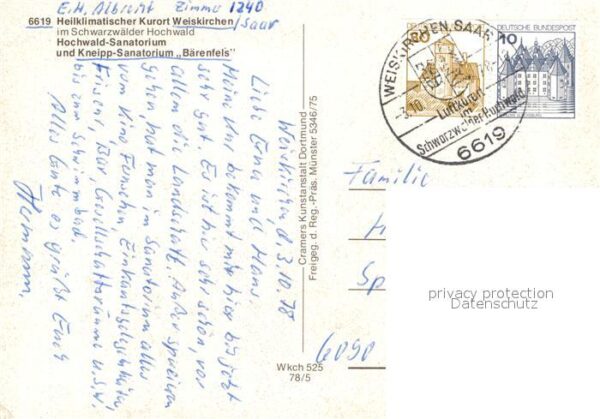 E.H. Albrecht Zimmer 1240
/Saar
6619 Heilklimatischer Kurort Weiskirchen
im Schwarzwälder Hochwald
Hochwald-Sanatorium
und Kneipp-Sanatorium „Bärenfels"
Weiskirchen, d. 3.10.78
Liebe Erna und Hans.
Meine Kur bekommt mir hier bis jetzt
sehr gut. Es ist hier sehr schön, vor
allem die Landschaft. Außer spazieren
gehen, hat man im Sanatorium alles
vom Kino Fernsehen, Einkaufsgelegenheiten,
Friseur, Bar, Gesellschaftsräume u.s.w.
bis zum Schwimmbad.
Alles Gute es grüßt Euch
Hermann.
Cramers Kunstanstalt Dortmund
Freigeg. d. Reg.-Präs. Münster 5346/75
Wkch 525
78/5
WEISKIRCHEN, SAAR
-3.10.
Luftkurort
im
Schwarzwälder Hochwald
6619
DEUTSCHE BUNDESPOST
10
Familie
H
Sp
6090
privacy protection
Datenschutz